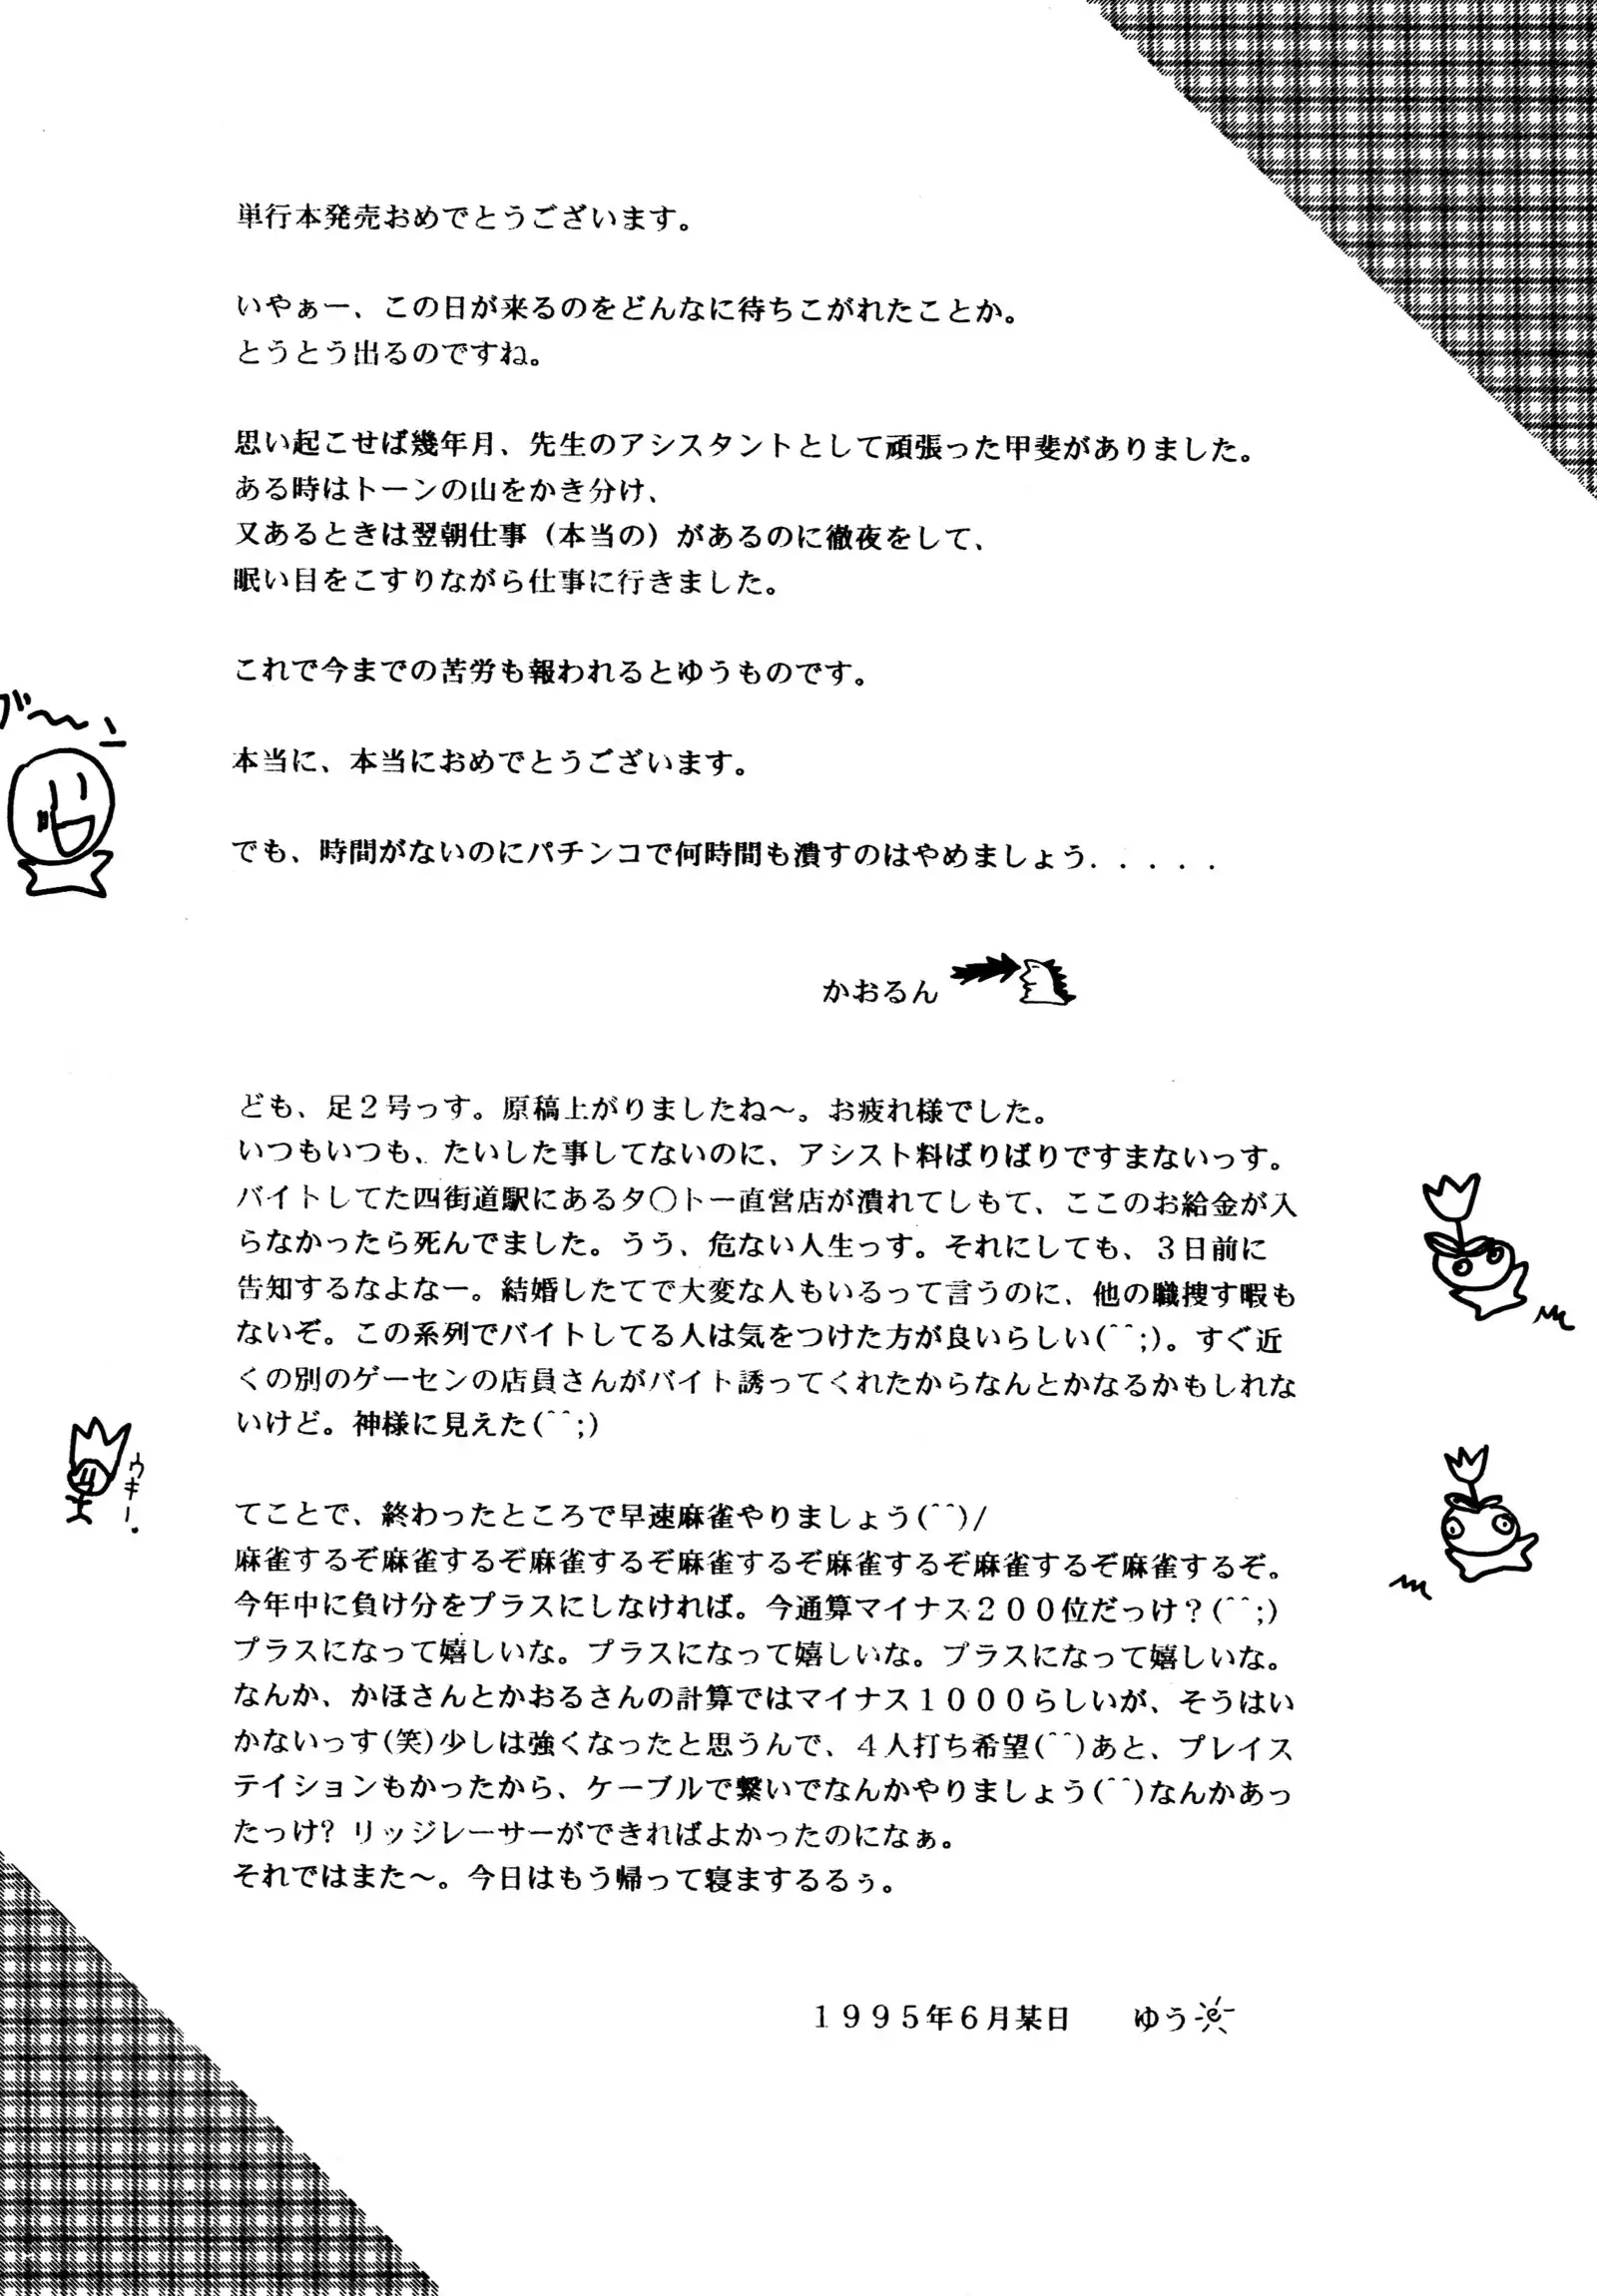 単行本発売おめでとうございます。
いやぁー、この日が来るのをどんなに待ちこがれたことか。
とうとう出るのですね。
思い起こせば幾年月、先生のアシスタントとして頑張った甲斐がありました。
ある時はトーンの山をかき分け、
又あるときは翌朝仕事（本当の）があるのに徹夜をして、
眠い目をこすりながら仕事に行きました。
これで今までの苦労も報われるとゆうものです。
ブ〜〜ン
本当に、本当におめでとうございます。
でも、時間がないのにパチンコで何時間も潰すのはやめましょう．．．．．
かおるん
ども、足２号っす。原稿上がりましたね〜。お疲れ様でした。
いつもいつも、たいした事してないのに、アシスト料ばりばりですまないっす。
バイトしてた四街道駅にあるタ〇トー直営店が潰れてしもて、ここのお給金が入
らなかったら死んでました。うう、危ない人生っす。それにしても、３日前に
告知するなよなー。結婚したてで大変な人もいるって言うのに、他の職捜す暇も
ないぞ。この系列でバイトしてる人は気をつけた方が良いらしい(^^;)。すぐ近
くの別のゲーセンの店員さんがバイト誘ってくれたからなんとかなるかもしれな
いけど。神様に見えた(^^;)
ウキー.
てことで、終わったところで早速麻雀やりましょう(^^)/
麻雀するぞ麻雀するぞ麻雀するぞ麻雀するぞ麻雀するぞ麻雀するぞ麻雀するぞ。
今年中に負け分をプラスにしなければ。今通算マイナス２００位だっけ？(^^;)
プラスになって嬉しいな。プラスになって嬉しいな。プラスになって嬉しいな。
なんか、かほさんとかおるさんの計算ではマイナス１０００らしいが、そうはい
かないっす(笑)少しは強くなったと思うんで、４人打ち希望(^^)あと、プレイス
テイションもかったから、ケーブルで繋いでなんかやりましょう(^^)なんかあっ
たっけ？リッジレーサーができればよかったのになぁ。
それではまた〜。今日はもう帰って寝まするるぅ。
１９９５年６月某日　ゆう